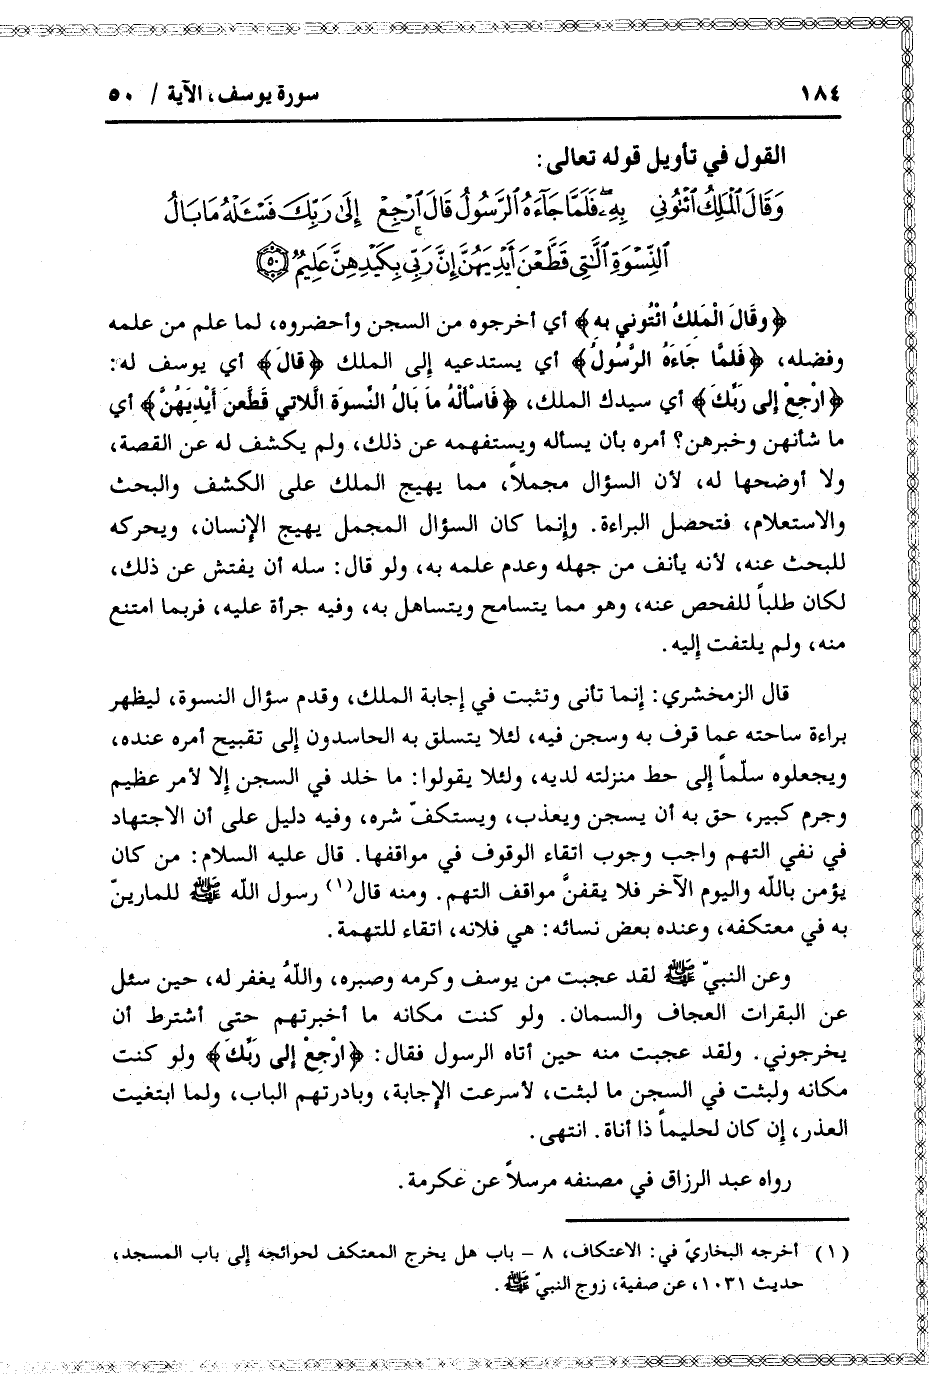 ١٨٤ سورة يوسف، الآية / ٥٠
القول في تأويل قوله تعالى:
وَقَالَ ٱلْمَلِكُ ٱئْتُونِي بِهِۦۖ فَلَمَّا جَآءَهُ ٱلرَّسُولُ قَالَ ٱرْجِعْ إِلَىٰ رَبِّكَ فَسْـَٔلْهُ مَا بَالُ
ٱلنِّسْوَةِ ٱلَّـٰتِي قَطَّعْنَ أَيْدِيَهُنَّ إِنَّ رَبِّي بِكَيْدِهِنَّ عَلِيمٌ ۝٥٠
﴿وقَالَ الْمَلكُ ائْتُوني به﴾ أي أخرجوه من السجن وأحضروه، لما علم من علمه
وفضله، ﴿فَلمَّا جَاءَهُ الرَّسُولُ﴾ أي يستدعيه إلى الملك ﴿قالَ﴾ أي يوسف له:
﴿ارْجعْ إلى رَبِّكَ﴾ أي سيدك الملك، ﴿فَاسأَلْهُ ما بَالُ النِّسوَة اللاتي قَطَّعنَ أَيْديَهُنَّ﴾ أي
ما شأنهن وخبرهن؟ أمره بأن يسأله ويستفهمه عن ذلك، ولم يكشف له عن القصة،
ولا أوضحها له، لأن السؤال مجملاً، مما يهيج الملك على الكشف والبحث
والاستعلام، فتحصل البراءة. وإنما كان السؤال المجمل يهيج الإنسان، ويحركه
للبحث عنه، لأنه يأنف من جهله وعدم علمه به، ولو قال: سله أن يفتش عن ذلك،
لكان طلباً للفحص عنه، وهو مما يتسامح ويتساهل به، وفيه جرأة عليه، فربما امتنع
منه، ولم يلتفت إليه.
قال الزمخشري: إنما تأنى وتثبت في إجابة الملك، وقدم سؤال النسوة، ليظهر
براءة ساحته عما قرف به وسجن فيه، لئلا يتسلق به الحاسدون إلى تقبيح أمره عنده،
ويجعلوه سلّماً إلى حط منزلته لديه، ولئلا يقولوا: ما خلد في السجن إلا لأمر عظيم
وجرم كبير، حق به أن يسجن ويعذب، ويستكفّ شره، وفيه دليل على أن الاجتهاد
في نفي التهم واجب وجوب اتقاء الوقوف في مواقفها. قال عليه السلام: من كان
يؤمن بالله واليوم الآخر فلا يقفنَّ مواقف التهم. ومنه قال(١) رسول الله ﷺ للمارينّ
به في معتكفه، وعنده بعض نسائه: هي فلانه، اتقاء للتهمة.
وعن النبيّ ﷺ لقد عجبت من يوسف وكرمه وصبره، واللهُ يغفر له، حين سئل
عن البقرات العجاف والسمان. ولو كنت مكانه ما أخبرتهم حتى أشترط أن
يخرجوني. ولقد عجبت منه حين أتاه الرسول فقال: ﴿ارْجعْ إلى رَبِّكَ﴾ ولو كنت
مكانه ولبثت في السجن ما لبثت، لأسرعت الإجابة، وبادرتهم الباب، ولما ابتغيت
العذر، إن كان لحليماً ذا أناة. انتهى.
رواه عبد الرزاق في مصنفه مرسلاً عن عكرمة.
(١) أخرجه البخاريّ في: الاعتكاف، ٨ – باب هل يخرج المعتكف لحوائجه إلى باب المسجد،
حديث ١٠٣١، عن صفية، زوج النبيّ ﷺ.